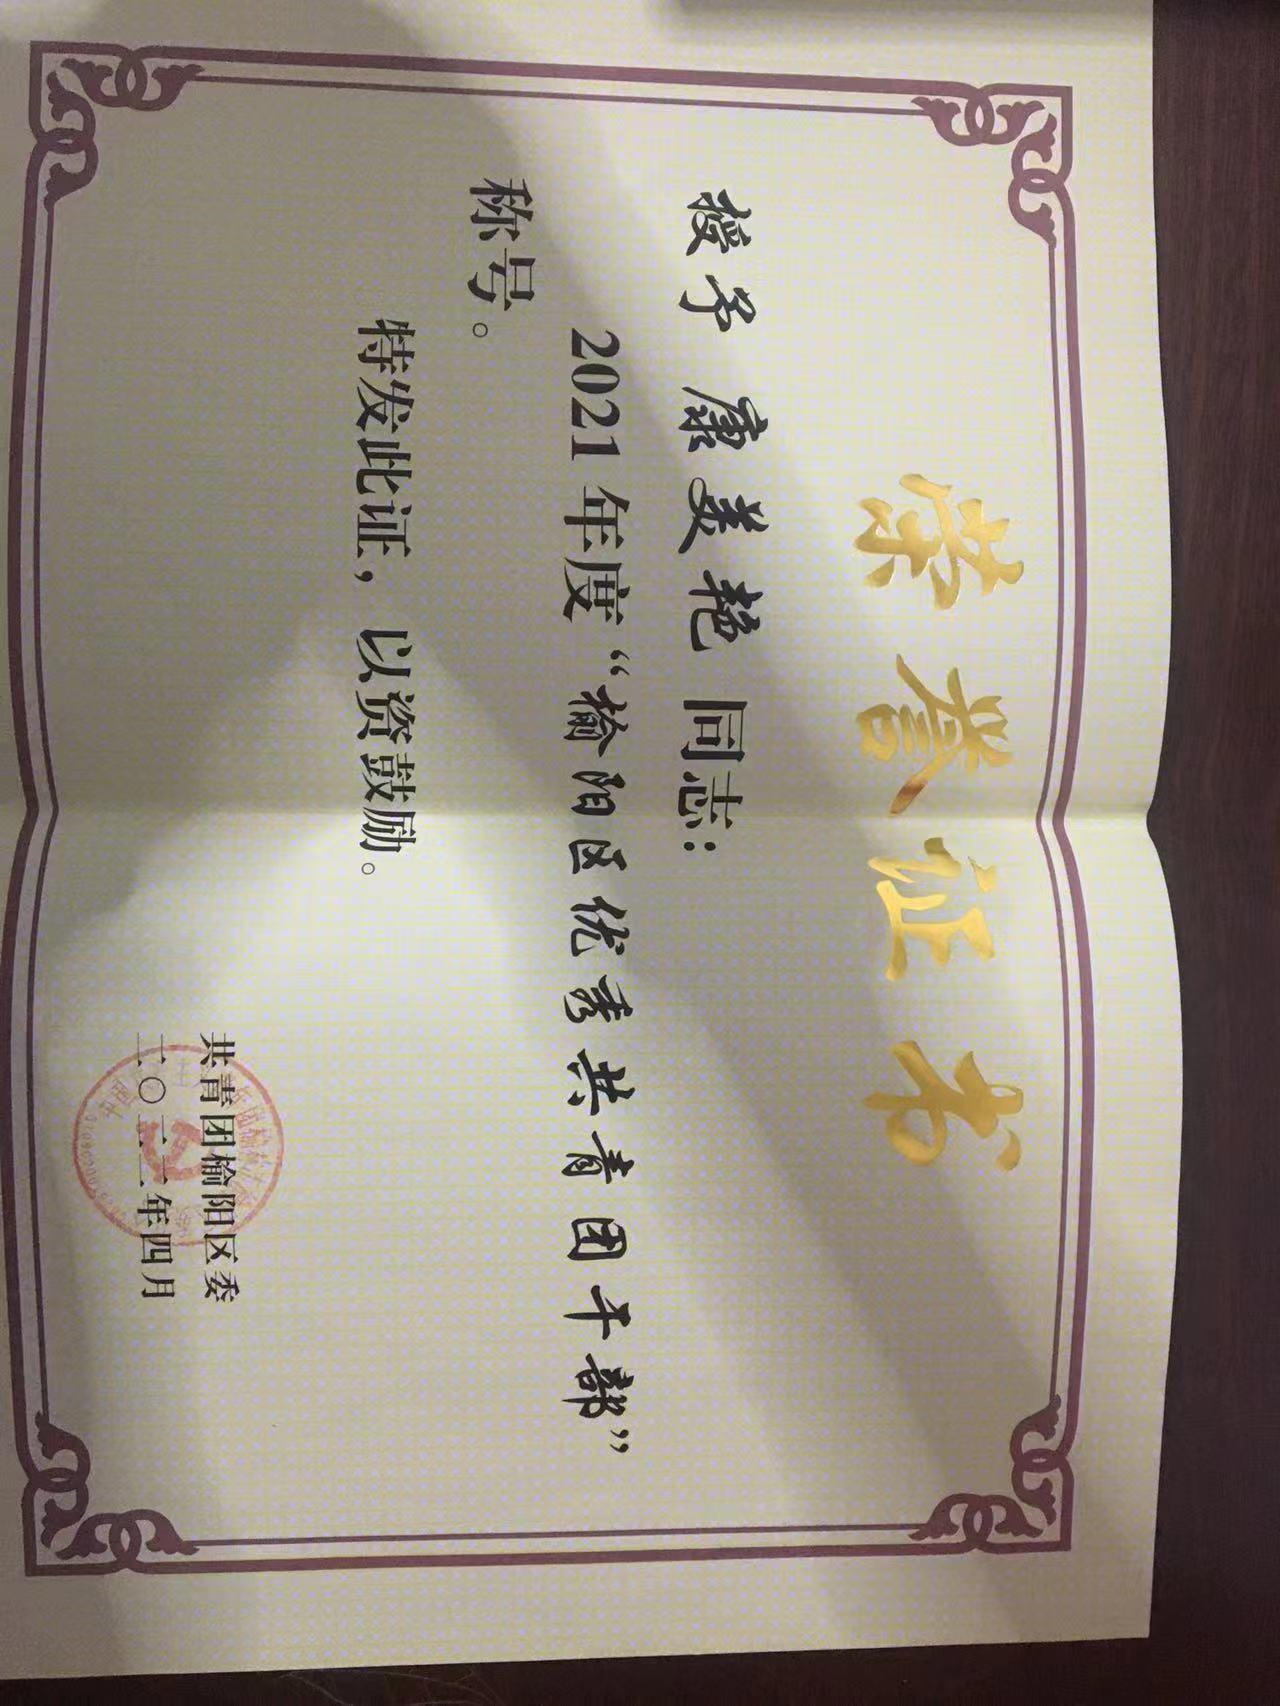 荣誉证书
授予 康美艳 同志：
2021年度“榆阳区优秀共青团干部”
称号。
特发此证，以资鼓励。
共青团榆阳区委
二〇二二年四月